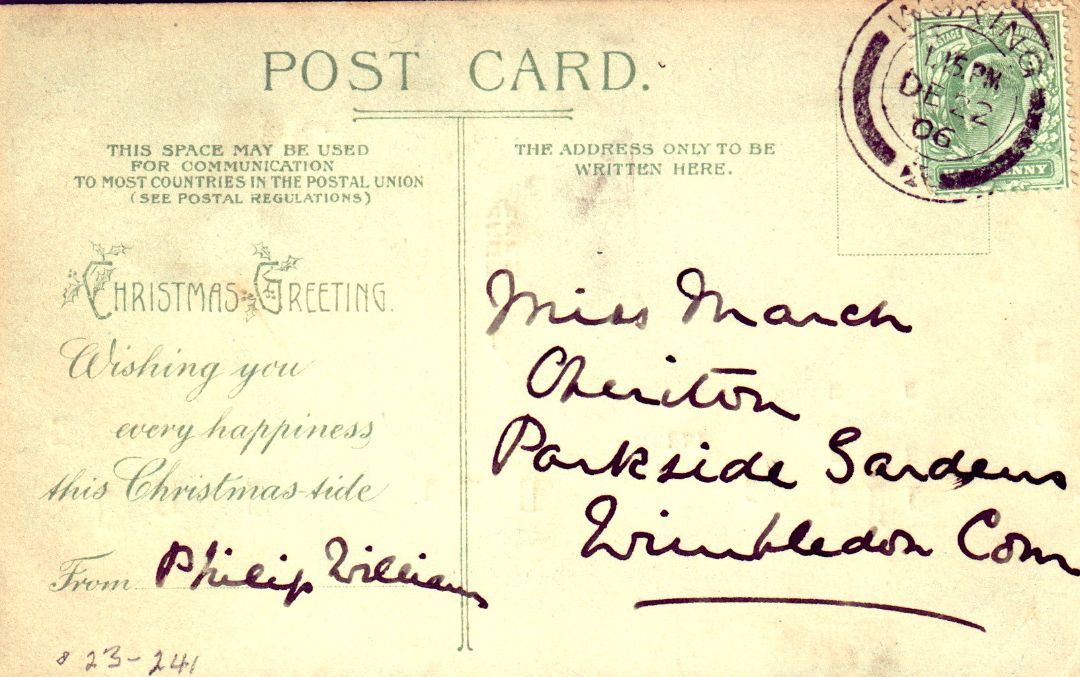 POST CARD.
THIS SPACE MAY BE USED
FOR COMMUNICATION
TO MOST COUNTRIES IN THE POSTAL UNION
(SEE POSTAL REGULATIONS)
THE ADDRESS ONLY TO BE
WRITTEN HERE.
WOKING
1.15 PM
DE 22
06
CHRISTMAS GREETING.
Wishing you
every happiness
this Christmas-tide
From Philip Williams
Miss March
Cheriton
Parkside Gardens
Wimbledon Com
23-241